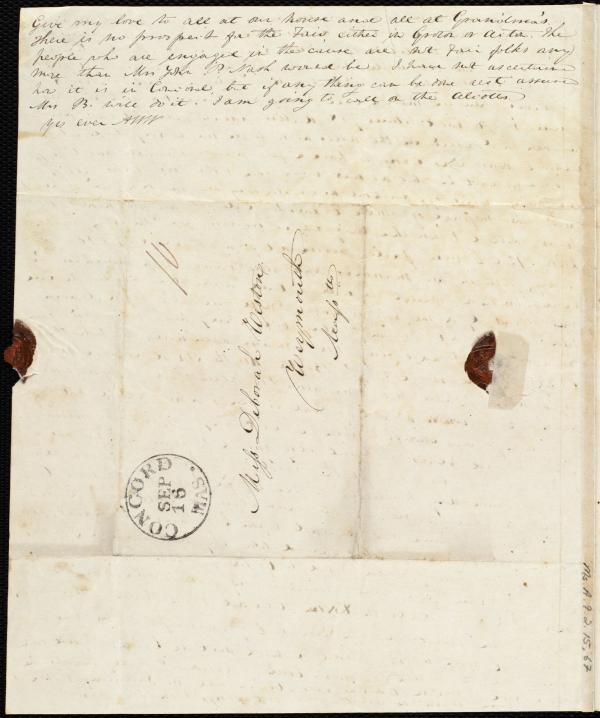 Give my love to all at our house and all at Grandma's.
There is no prospect for the Fair, either in Groton or Acton. The
people who are engaged in the cause are not Fair folks any
more than Mrs John P Nash would be. I have not ascertain
how it is in Concord, but if any thing can be done rest assured
Mrs B. will do it. I am going to call on the Alcotts
Yrs ever AWW
10
Miss Deborah Weston
Weymouth
Mass tts
CONCORD MAS.
SEP
16
Ms. A. 9. 2. 15, 67